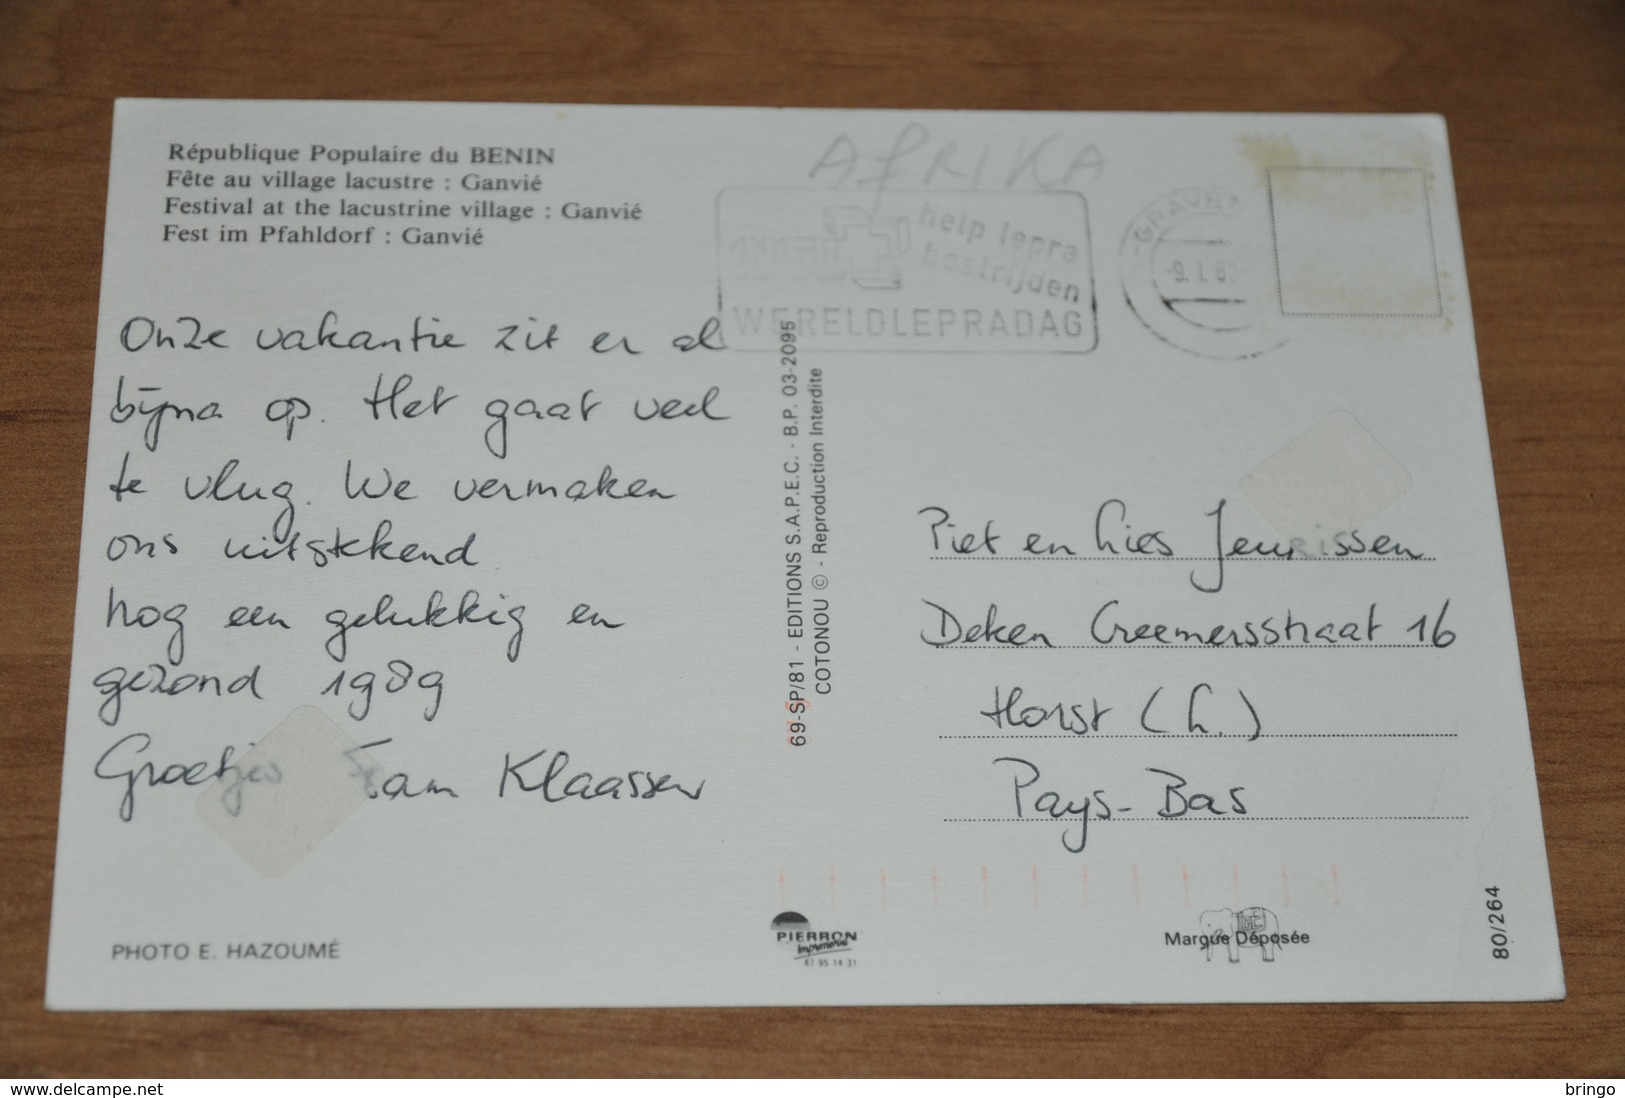 République Populaire du BENIN
Fête au village lacustre : Ganvié
Festival at the lacustrine village : Ganvié
Fest im Pfahldorf : Ganvié
AfRIKA
help lepra
bestrijden
WERELDLEPRADAG
Onze vakantie zit er al
bijna op. Het gaat veel
te vlug. We vermaken
ons uitstekend
Nog een gelukkig en
gezond 1989
Groetjes Fam Klaassen
69-SP/81 - EDITIONS S.A.P.E.C. - B.P. 03-2095
COTONOU © - Reproduction Interdite
Piet en Lies Jeurissen
Deken Creemersstraat 16
Horst (L.)
Pays-Bas
PHOTO E. HAZOUMÉ
PIERRON
Imprimerie
87 95 14 31
Marque Déposée
80/264
www.delcampe.net
bringo